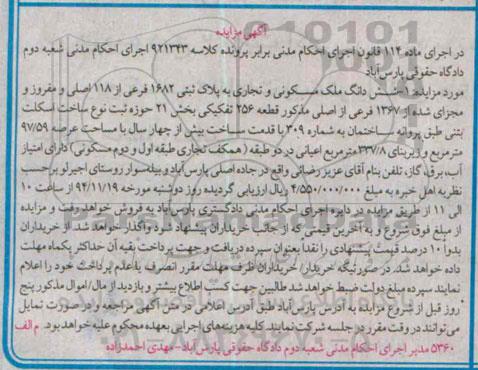 آگهی مزایده
در اجرای ماده ۱۱۴ قانون اجرای احکام مدنی برابر پرونده کلاسه ۹۲۱۳۴۳ اجرای احکام مدنی شعبه دوم
دادگاه حقوقی پارس آباد
مورد مزایده: ۱-شش دانگ ملک مسکونی و تجاری به پلاک ثبتی ۱۶۸۲ فرعی از ۱۱۸ اصلی و مفروز و
مجزای شده از ۱۳۶۷ فرعی از اصلی مذکور قطعه ۲۵۶ تفکیکی بخش ۲۱ حوزه ثبت نوع ساخت اسکلت
بتنی طبق پروانه ساختمان به شماره ۳۰۹ با قدمت مساخت بیش از چهار سال با مساحت عرصه ۹۷/۵۹
مترمربع و زیربنای ۳۳۷/۸ مترمربع اعیانی در دو طبقه (همکف تجاری طبقه اول و دوم مسکونی) دارای امتیاز
آب، برق، گاز، تلفن بنام آقای عزیز رضائی واقع در جاده اصلی پارس آباد و بیله سوار روستای اجیرلو بر حسب
نظریه اهل خبره به مبلغ ۴/۵۵۰/۰۰۰/۰۰۰ ریال ارزیابی گردیده روز دوشنبه مورخه ۹۴/۱۱/۱۹ از ساعت ۱۰
الی ۱۱ از طریق مزایده در دایره اجرای احکام مدنی دادگستری پارس آباد به فروش خواهد رفت و مزایده
از مبلغ فوق شروع و به آخرین قیمتی که از جانب خریداران پیشنهاد شود واگذار خواهد شد. از خریداران
بدوا ۱۰ درصد قیمت پیشنهادی را نقدا بعنوان سپرده دریافت و جهت پرداخت بقیه آن حداکثر یکماه مهلت
داده خواهد شد. در صورتیکه خریدار/ خریداران ظرف مهلت مقرر انصرف یا عدم پرداخت خود را اعلام
نمایند سپرده مبلغ دولت ضبط خواهد شد طالبین جهت کسب اطلاع بیشتر و بازدید از مال/اموال مذکور پنج
روز قبل از شروع مزایده به آدرس پارس آباد طبق آدرس اعلامی در متن آگهی مراجعه و در صورت تمایل
می توانند در وقت مقرر در جلسه شرکت نمایند. کلیه هزینه های اجرایی بعهده محکوم علیه خواهد بود. م الف
۵۳۶۰ مدیر اجرای احکام مدنی شعبه دوم دادگاه حقوقی پارس آباد- مهدی احمدزاده